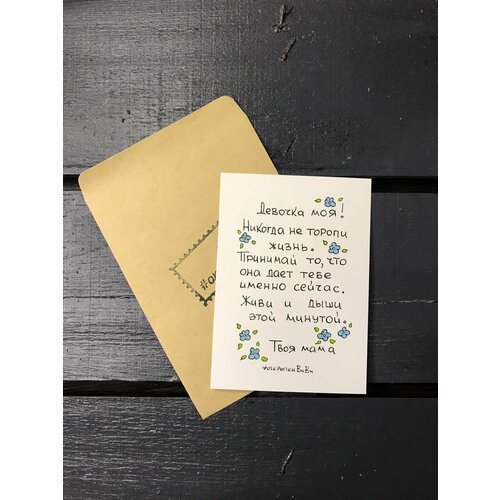 Девочка моя!
Никогда не торопи
жизнь.
Принимай то, что
она дает тебе
именно сейчас.
Живи и дыши
этой минутой.
Твоя мама